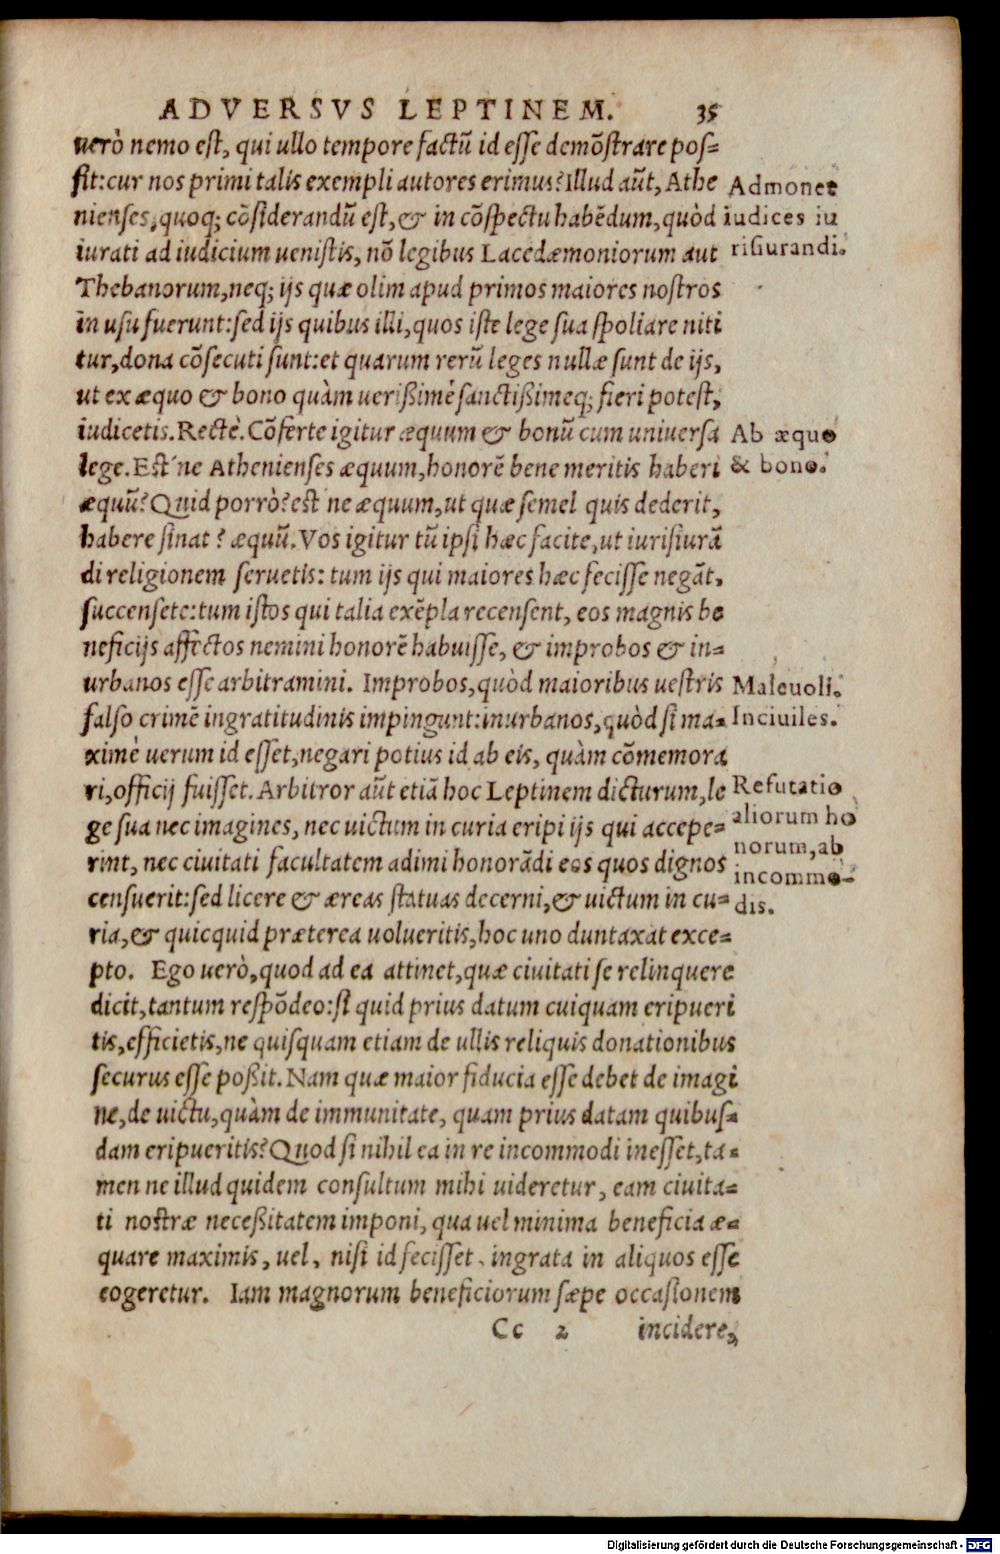 ADVERSVS LEPTINEM. 35
uerò nemo est, qui ullo tempore factū id esse demōstrare pos-
sit: cur nos primi talis exempli autores erimus? Illud aūt, Athe
nienses, quoq; cōsiderandū est, & in cōspectu habēdum, quòd
iurati ad iudicium uenistis, nō legibus Lacedæmoniorum aut
Thebanorum, neq; ijs quæ olim apud primos maiores nostros
in usu fuerunt: sed ijs quibus illi, quos iste lege sua spoliare niti
tur, dona cōsecuti sunt: et quarum rerū leges nullæ sunt de ijs,
ut ex æquo & bono quàm uerißimè sanctißimeq; fieri potest,
iudicetis. Rectè. Cōferte igitur æquum & bonū cum uniuersa
lege. Est'ne Athenienses æquum, honorē bene meritis haberi
æquū? Quid porrò? est ne æquum, ut quæ semel quis dederit,
habere sinat? æquū. Vos igitur tū ipsi hæc facite, ut iurisiurā
di religionem seruetis: tum ijs qui maiores hæc fecisse negāt,
succensete: tum istos qui talia exēpla recensent, eos magnis be
neficijs affectos nemini honorē habuisse, & improbos & in-
urbanos esse arbitramini. Improbos, quòd maioribus uestris
falso crimē ingratitudinis impingunt: inurbanos, quòd si ma-
ximè uerum id esset, negari potius id ab eis, quàm cōmemora
ri, officij fuisset. Arbitror aūt etiā hoc Leptinem dicturum, le
ge sua nec imagines, nec uictum in curia eripi ijs qui accepe-
rint, nec ciuitati facultatem adimi honorādi eos quos dignos
censuerit: sed licere & æreas statuas decerni, & uictum in cu-
ria, & quicquid præterea uolueritis, hoc uno duntaxat exce-
pto. Ego uerò, quod ad ea attinet, quæ ciuitati se relinquere
dicit, tantum respōdeo: si quid prius datum cuiquam eripueri
tis, efficietis, ne quisquam etiam de ullis reliquis donationibus
securus esse poßit. Nam quæ maior fiducia esse debet de imagi
ne, de uictu, quàm de immunitate, quam prius datam quibus-
dam eripueritis? Quod si nihil ea in re incommodi inesset, ta-
men ne illud quidem consultum mihi uideretur, eam ciuita-
ti nostræ neceßitatem imponi, qua uel minima beneficia æ-
quare maximis, uel, nisi id fecisset, ingrata in aliquos esse
cogeretur. Iam magnorum beneficiorum sæpe occasionem
Cc 2 incidere,
Admonet
iudices iu
risiurandi.
Ab æquo
& bono.
Maleuoli.
Inciuiles.
Refutatio
aliorum ho
norum, ab
incommo-
dis.
Digitalisierung gefördert durch die Deutsche Forschungsgemeinschaft - DFG